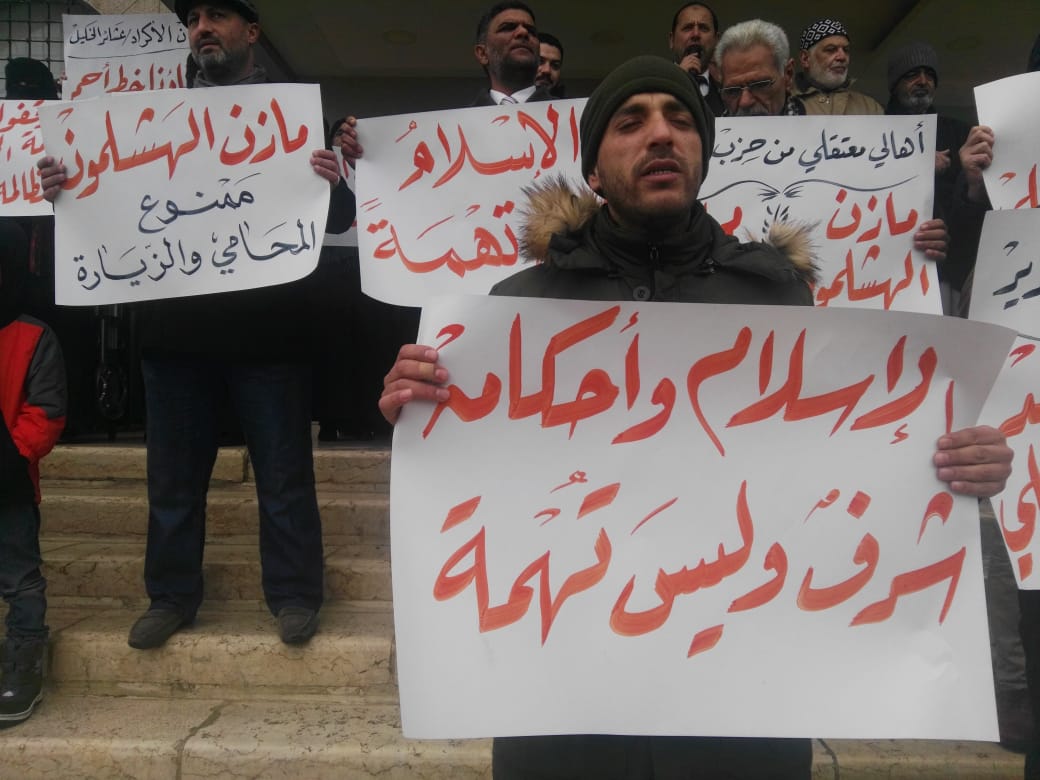 ن الأكراد/عشائر الخليل
خط أحمر
مازن الهشلمون
ممنوع
المحامي والزيارة
الإسلام
تهمة
أهالي معتقلي من حزب
مازن
الهشلمون
الإسلام وأحكامه
شرف وليس تهمة